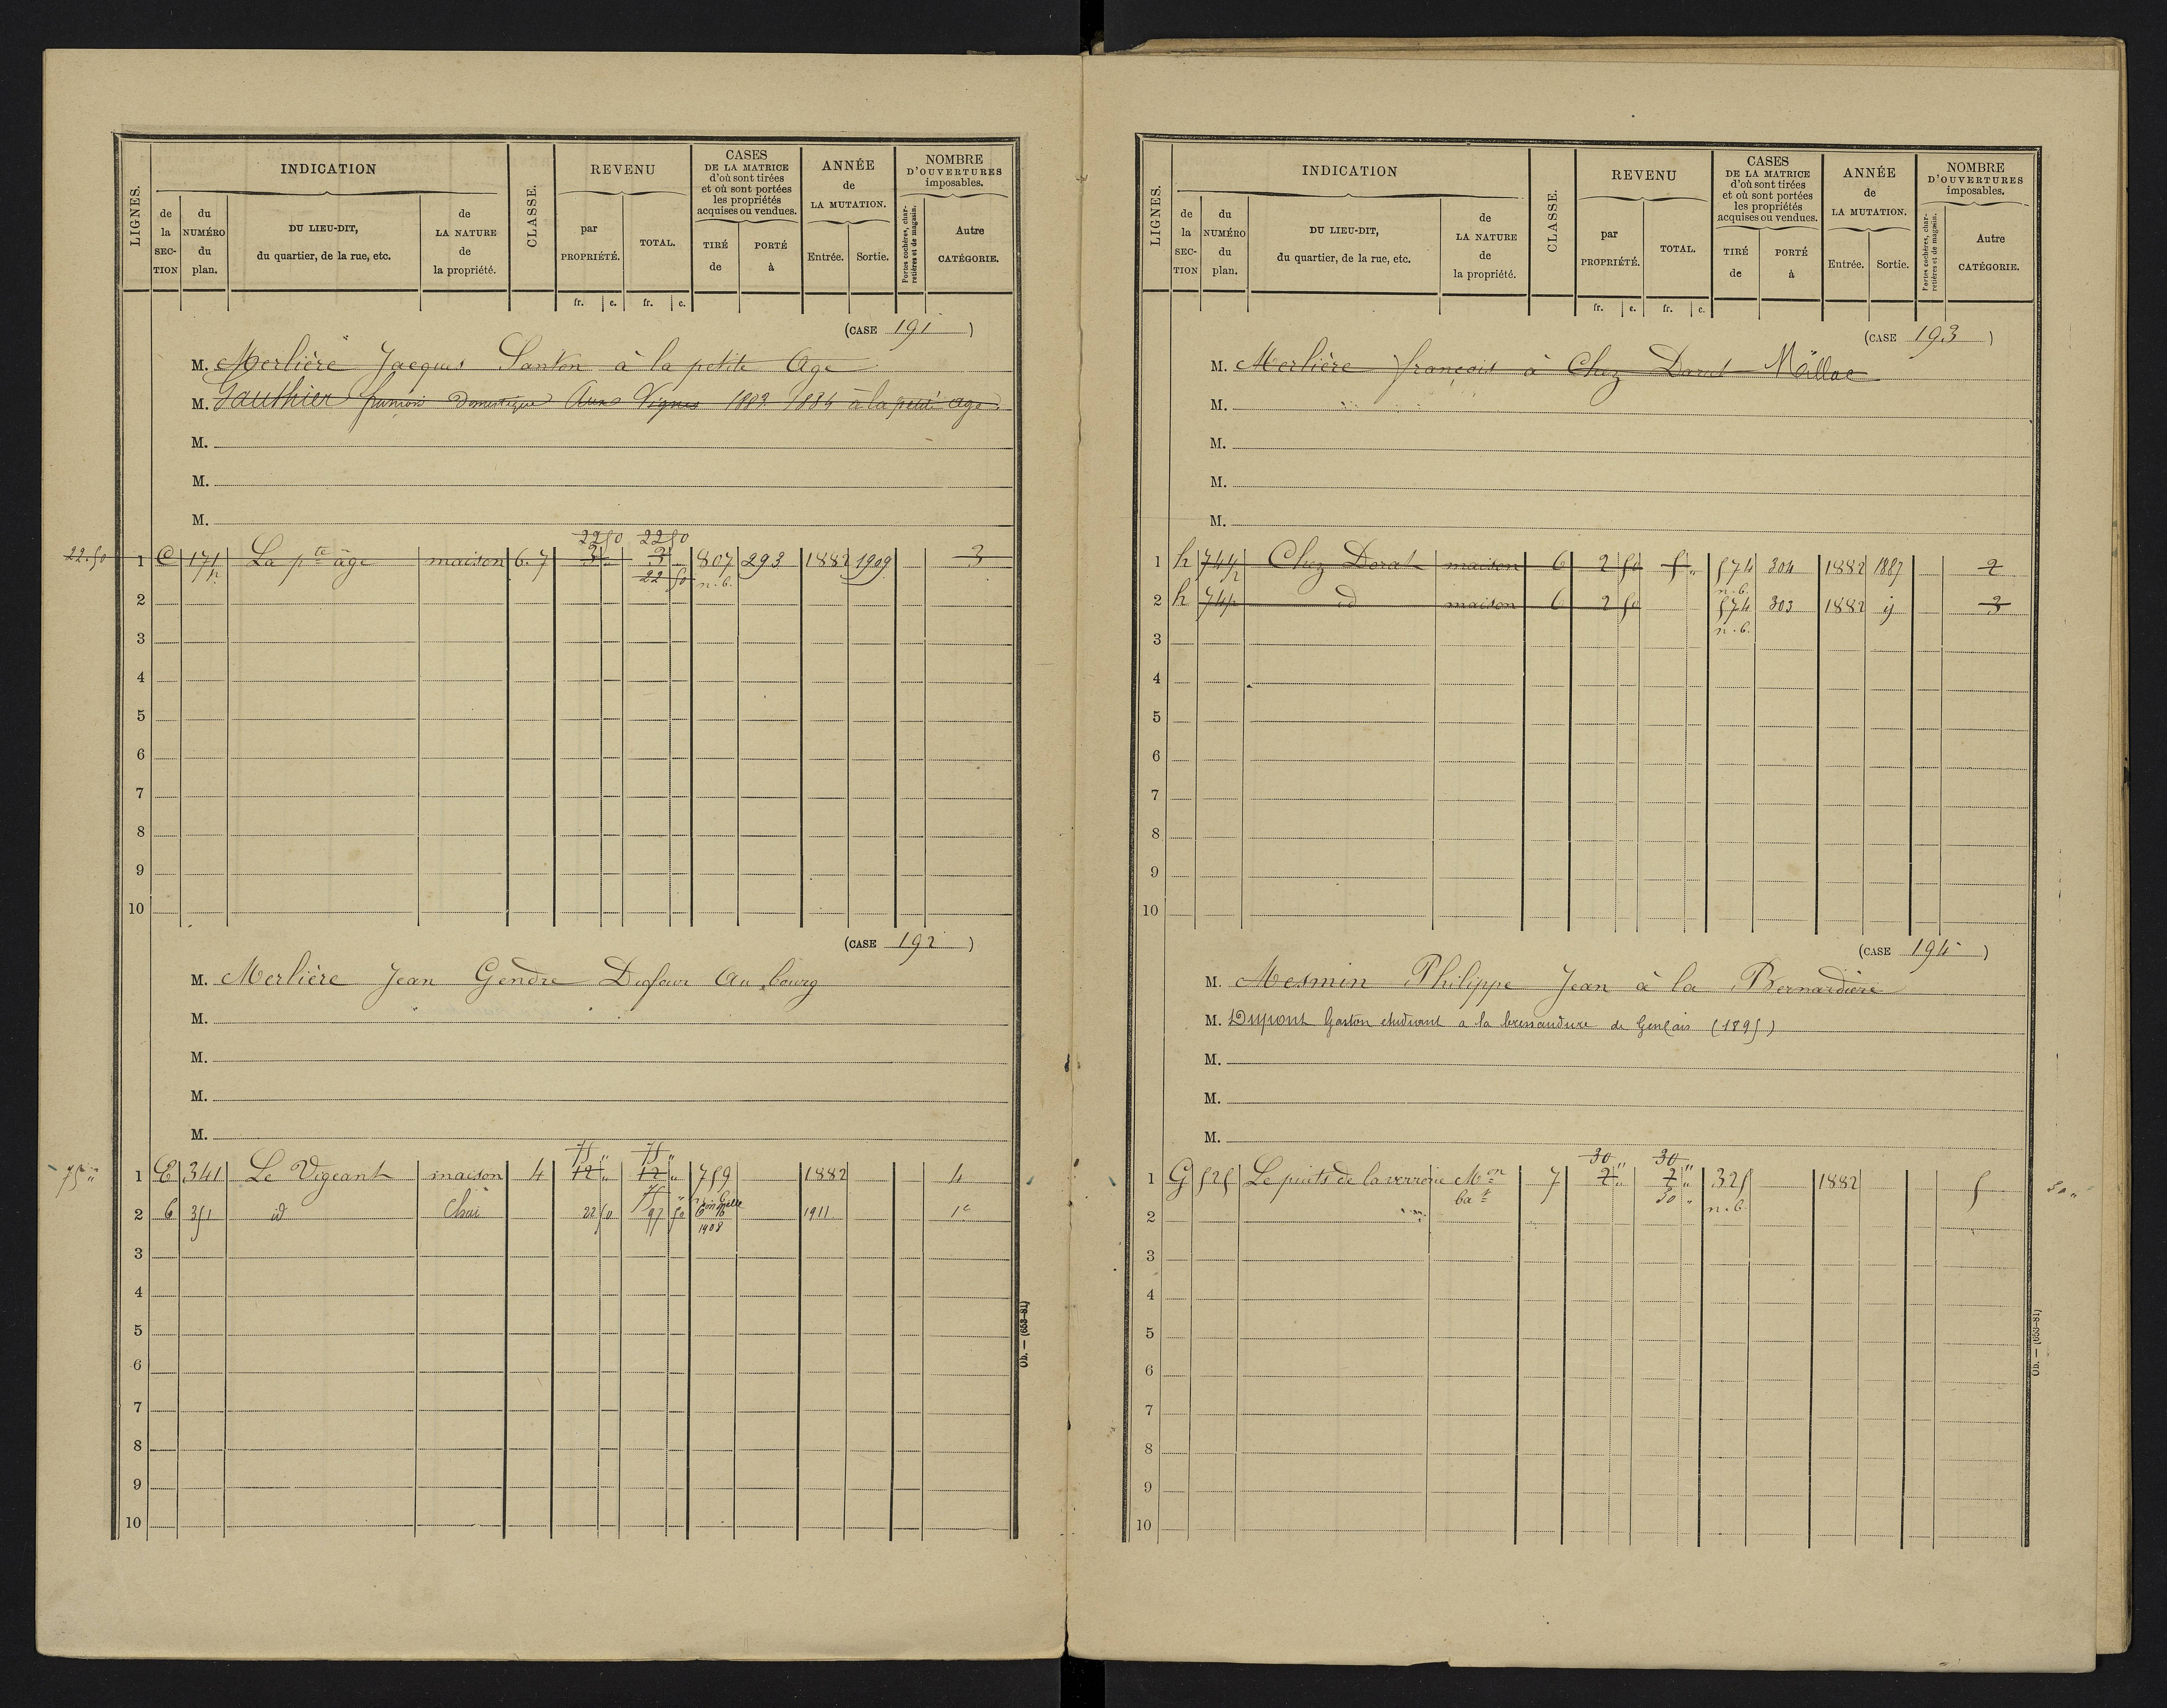 LIGNES.
INDICATION
de la SECTION
du NUMÉRO du plan.
DU LIEU-DIT, du quartier, de la rue, etc.
de LA NATURE de la propriété.
CLASSE.
REVENU
par PROPRIÉTÉ.
TOTAL.
CASES DE LA MATRICE d'où sont tirées et où sont portées les propriétés acquises ou vendues.
TIRÉ de
PORTÉ à
ANNÉE de LA MUTATION.
Entrée.
Sortie.
NOMBRE D'OUVERTURES imposables.
Portes cochères, charretières et de magasin.
Autre CATÉGORIE.
fr. c. fr. c.
(CASE 191)
M. Merlière Jacques Santon à la petite Age
M. Gauthier domestique Aux Vignes 1882 1884 à la petite age
M.
M.
M.
22.50 22 50
22.50 1 C 171p La pte âge maison 6.7 3 " 3 " 807 293 1882 1909 3
22 50 n.b.
2
3
4
5
6
7
8
9
10
(CASE 192)
M. Merlière Jean Gendre Dufour Au bourg
M.
M.
M.
M.
75 " 75 "
75 " 1 E 341 Le Vigeant maison 4 12 " 12 " 759 1882 4
75 "
2 6 351 id Chai 22 50 97 50 1911 1c
1908
3
4
5
6
7
8
9
10
Ob. — (653-81)
LIGNES.
INDICATION
de la SECTION
du NUMÉRO du plan.
DU LIEU-DIT, du quartier, de la rue, etc.
de LA NATURE de la propriété.
CLASSE.
REVENU
par PROPRIÉTÉ.
TOTAL.
CASES DE LA MATRICE d'où sont tirées et où sont portées les propriétés acquises ou vendues.
TIRÉ de
PORTÉ à
ANNÉE de LA MUTATION.
Entrée.
Sortie.
NOMBRE D'OUVERTURES imposables.
Portes cochères, charretières et de magasin.
Autre CATÉGORIE.
fr. c. fr. c.
(CASE 193)
M. Merlière françois à Chez Dorat Millac
M.
M.
M.
M.
1 h 744p Chez Dorat maison 6 2 50 5 " 574 304 1882 1887 2
n.b.
2 h 744p id maison 6 2 50 574 303 1882 ij 3
n.b.
3
4
5
6
7
8
9
10
(CASE 194)
M. Mesmin Philippe Jean à la Bernardière
M. Dupont Gaston etudiant a la de Gençais (1895)
M.
M.
M.
30 " 30 "
1 G 525 Le puits de la verrerie Mon 7 7 " 7 " 325 1882 5 30 "
bat 30 " n.b.
2
3
4
5
6
7
8
9
10
Ob. — (653-81)